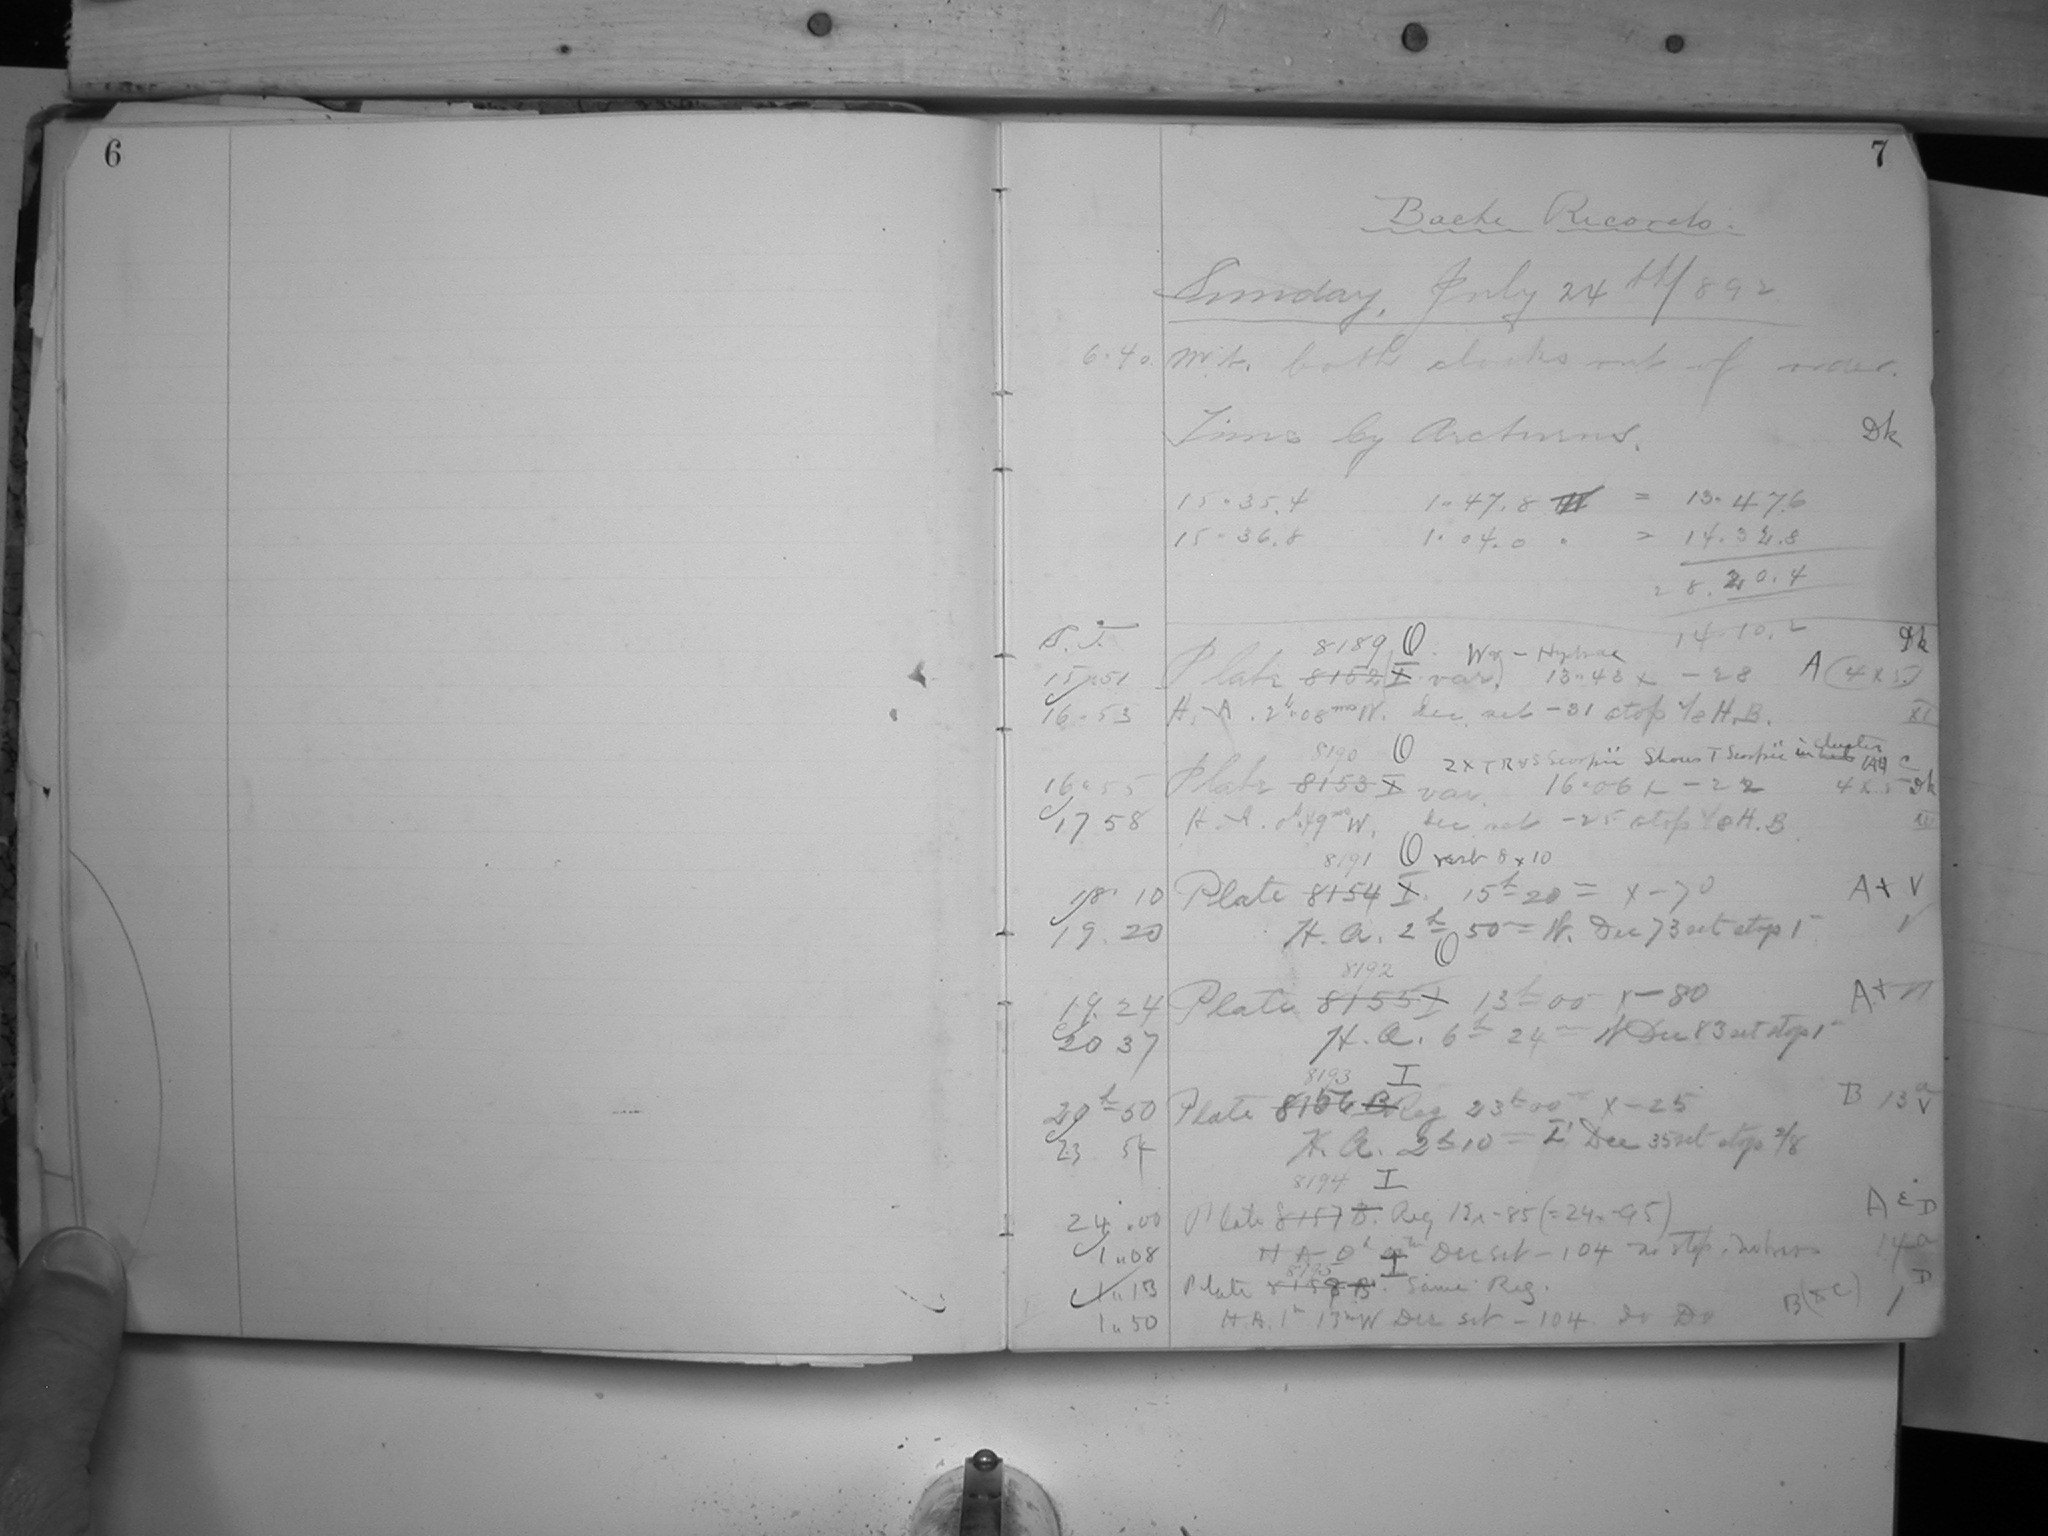 6
7
Bache Records.
Sunday, July 24th/892
6.40. M.T. both clocks out of order.
Time by Arcturus. Dk
15.35.4 1.47.8 W = 13.47.6
15.36.8 1.04.0 " = 14.32.8
28.20.4
S.T. 14.10.2
8189 O. W - Hydrae Dk
15.51 Plate 8152 X var. 13.43 x -28 A (4x5)
16.53 H.A. 2h.08m W. dec. set -31 stop 4/8 H.B. XI
8190 O 2 x T R & S Scorpii Shows T Scorpii in cluster C
16.55 Plate 8153 X var. 16.06 x -22 4x5 Dk
17 58 H.A. 0h.49m W. dec. set -25 stop H.B.
8191 O rest 8x10
18. 10 Plate 8154 X. 15h 20m x -70 A+ V
19. 20 H.A. 2h 50m W. Dec 73 set stop 1 V
8192 O
19. 24 Plate 8155 X 13h 00 x -80 A+ n
20 37 H.A. 6h 24m W Dec 83 set stop 1
8193 I
20h 50 Plate 8156 B Reg 23h 00m x -25 B 13
23 54 H.A. 2h 10m E Dec 35 set stop 2/8
8194 I
24.00 Plate 8157 B. Reg 12x -85 (=24x -95) A
1.08 H A 0h Dec set -104 no stop 14
8195 I
1.13 Plate 8158 B. Same Reg.
1.50 H.A. 1h 13m W Dec set -104 do Do